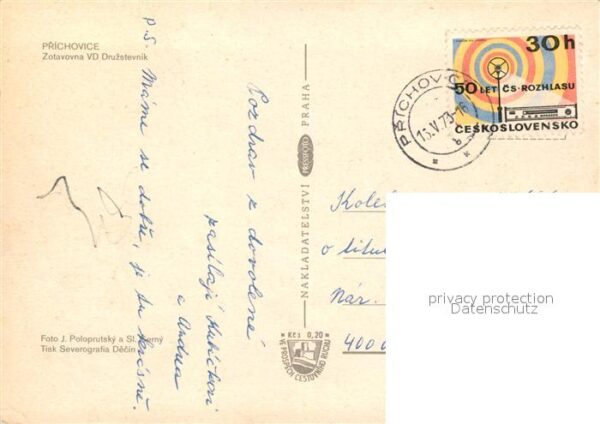 PŘÍCHOVICE
Zotavovna VD Družstevník
P.S. Máme se dobře, je tu krásně.
Pozdrav z dovolené
zasílají Kubíčkovi
a Andrea
Foto J. Poloprutský a Sl. Černý
Tisk Severografia Děčín
NAKLADATELSTVÍ PRESSFOTO PRAHA
* Kčs 0,20 *
VE PROSPĚCH CESTOVNÍHO RUCHU
30h
50 LET ČS. ROZHLASU
ČESKOSLOVENSKO
PŘÍCHOVICE
15.V.73-16
b
Kole
o
Nár.
400
privacy protection
Datenschutz